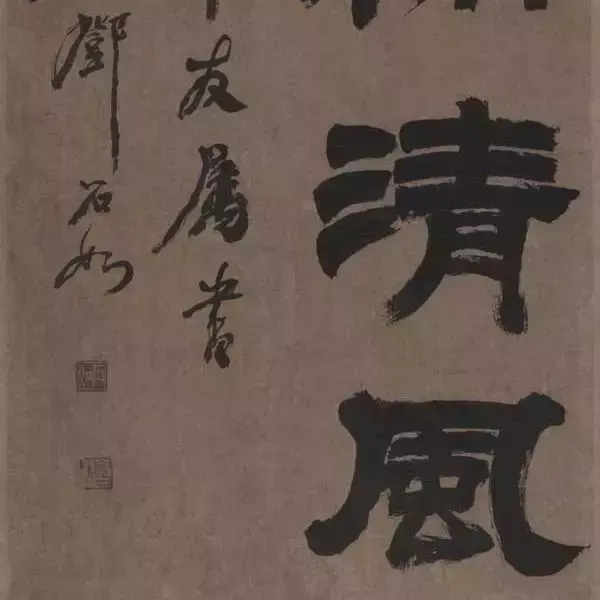 清風
友属書
鄧石如